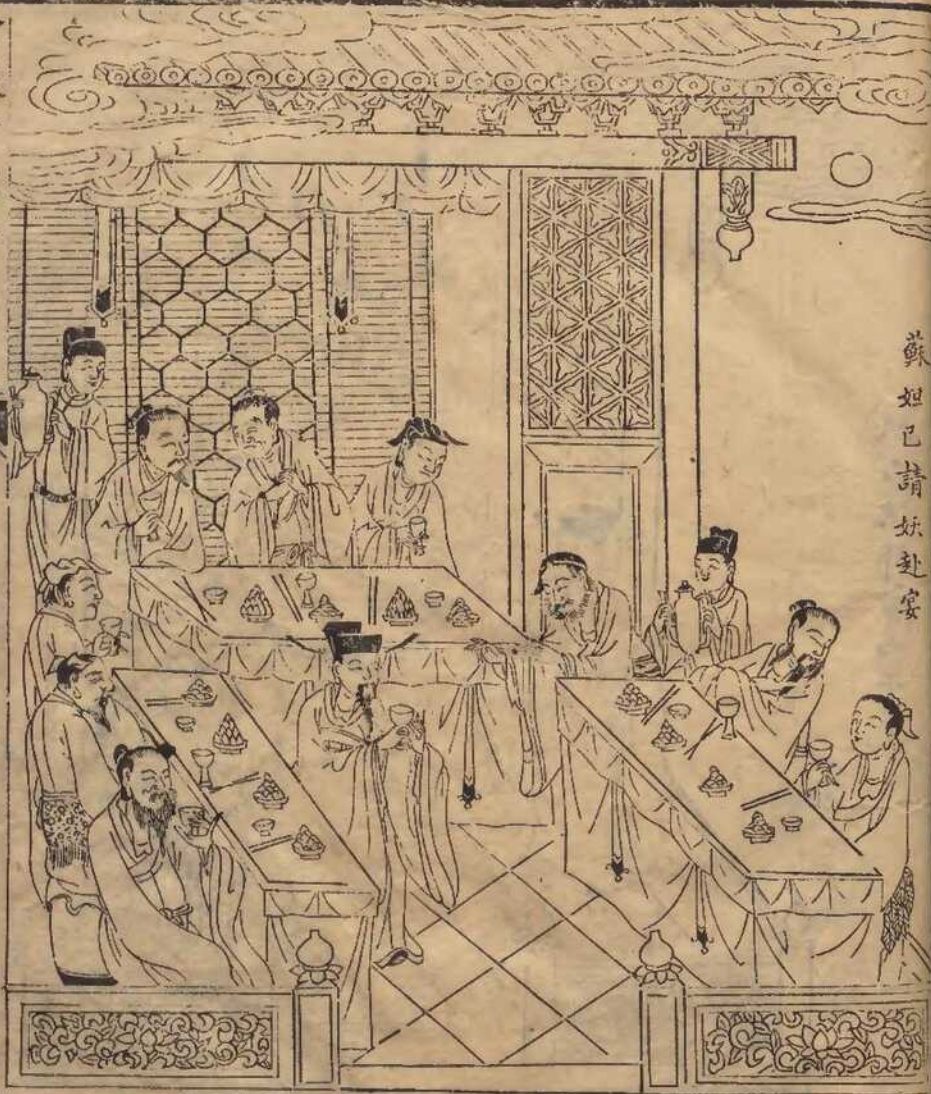 蘇妲己請妖赴宴